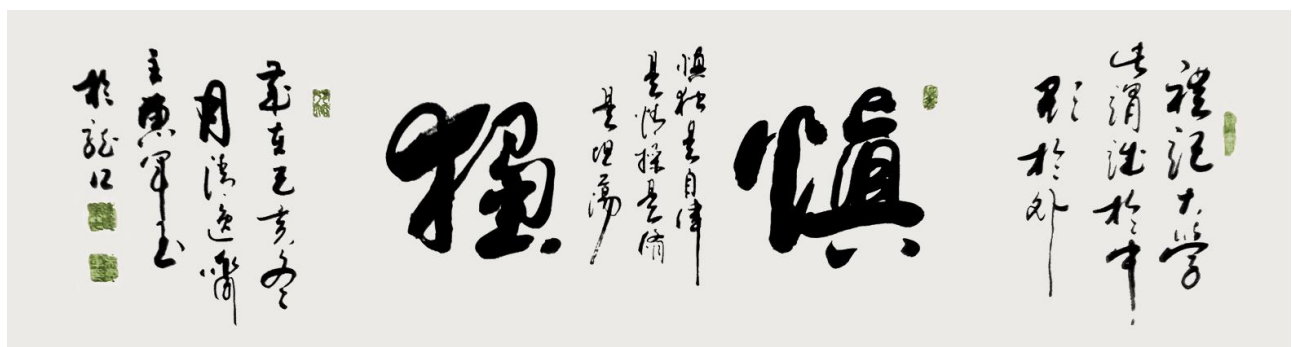 禮記大學
此謂誠於中
形於外
慎
慎独是自律
是情操是修
是坦蕩
獨
歲在己亥冬
月清逸齋
主軍
於龍